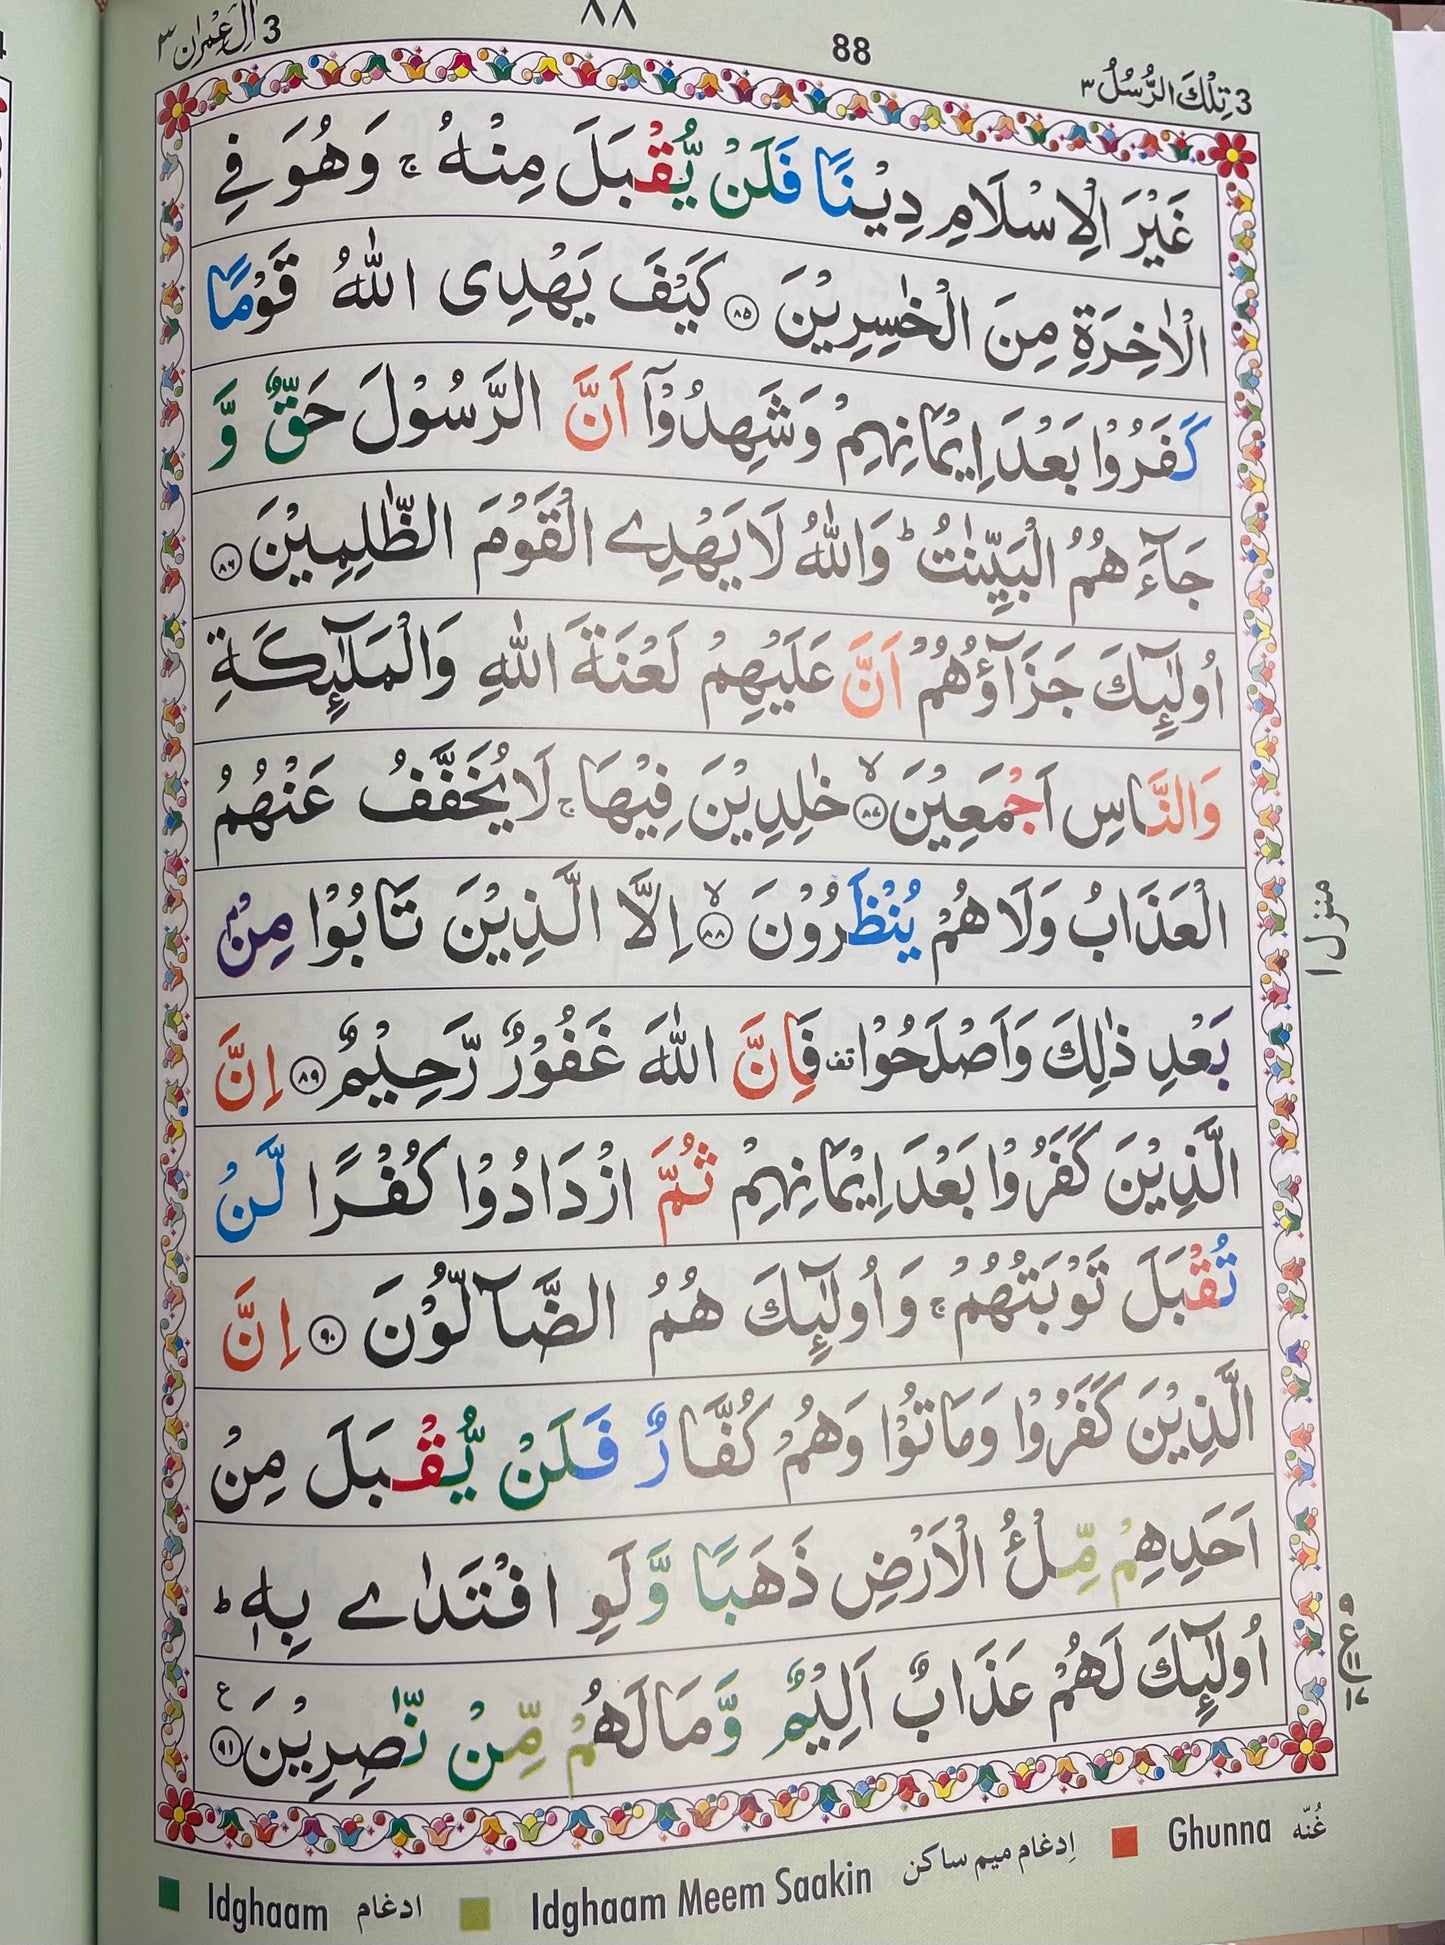 3 اٰلِ عِمْرٰن ٣
٨٨
88
3 تِلْكَ الرُّسُلُ ٣
غَيْرَ الْاِسْلَامِ دِيْنًا فَلَنْ يُّقْبَلَ مِنْهُ ۚ وَهُوَ فِي
الْاٰخِرَةِ مِنَ الْخٰسِرِيْنَ ۝٨٥ كَيْفَ يَهْدِى اللّٰهُ قَوْمًا
كَفَرُوْا بَعْدَ اِيْمَانِهِمْ وَشَهِدُوْٓا اَنَّ الرَّسُوْلَ حَقٌّ وَّ
جَآءَهُمُ الْبَيِّنٰتُ ؕ وَاللّٰهُ لَا يَهْدِے الْقَوْمَ الظّٰلِمِيْنَ ۝٨٦
اُولٰٓئِكَ جَزَآؤُهُمْ اَنَّ عَلَيْهِمْ لَعْنَةَ اللّٰهِ وَالْمَلٰٓئِكَةِ
وَالنَّاسِ اَجْمَعِيْنَ ۝٨٧ۙ خٰلِدِيْنَ فِيْهَا ۚ لَا يُخَفَّفُ عَنْهُمُ
الْعَذَابُ وَلَا هُمْ يُنْظَرُوْنَ ۝٨٨ۙ اِلَّا الَّذِيْنَ تَابُوْا مِنْۢ
بَعْدِ ذٰلِكَ وَاَصْلَحُوْا قف فَاِنَّ اللّٰهَ غَفُوْرٌ رَّحِيْمٌ ۝٨٩ اِنَّ
الَّذِيْنَ كَفَرُوْا بَعْدَ اِيْمَانِهِمْ ثُمَّ ازْدَادُوْا كُفْرًا لَّنْ
تُقْبَلَ تَوْبَتُهُمْ ۚ وَاُولٰٓئِكَ هُمُ الضَّآلُّوْنَ ۝٩٠ اِنَّ
الَّذِيْنَ كَفَرُوْا وَمَاتُوْا وَهُمْ كُفَّارٌ فَلَنْ يُّقْبَلَ مِنْ
اَحَدِهِمْ مِّلْءُ الْاَرْضِ ذَهَبًا وَّلَوِ افْتَدٰے بِهٖ ؕ
اُولٰٓئِكَ لَهُمْ عَذَابٌ اَلِيْمٌ وَّمَا لَهُمْ مِّنْ نّٰصِرِيْنَ ۝٩١ ع
منزل ١
Idghaam ادغام Idghaam Meem Saakin اِدغام ميم ساكن Ghunna غُنّه